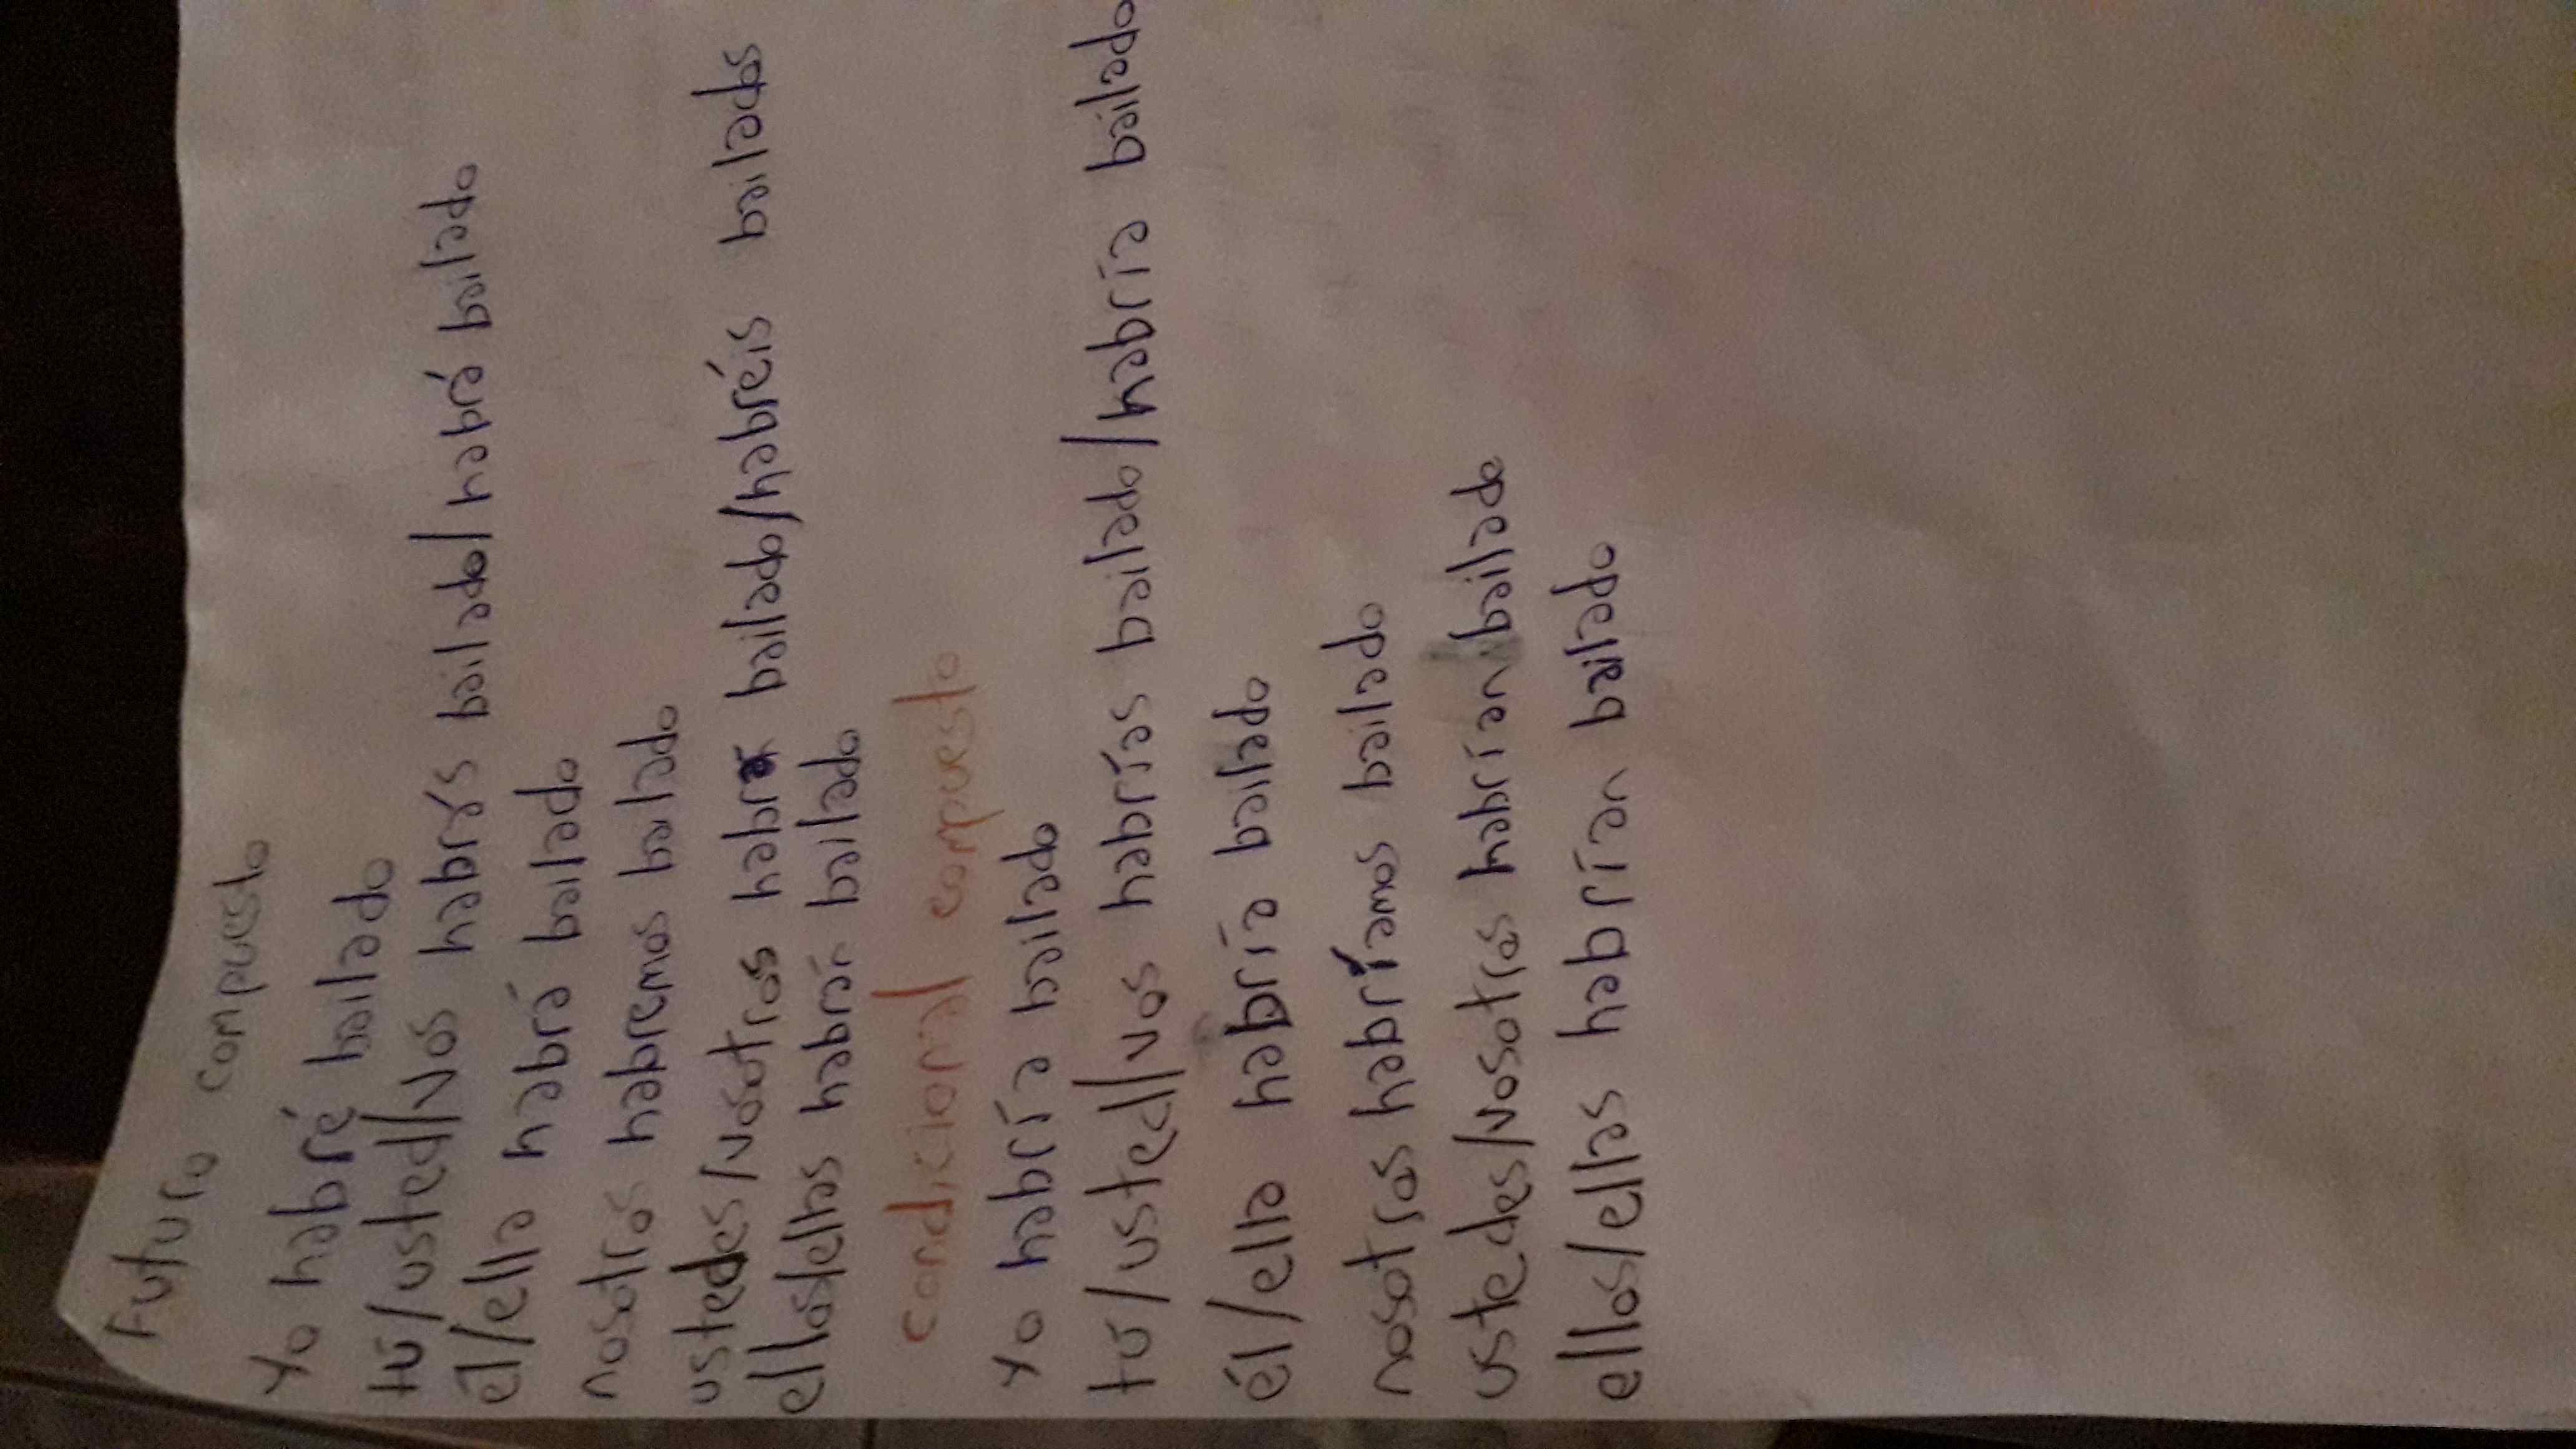 Futuro compuesto
Yo habré bailado
tú/usted/vos habrás bailado/habrá bailado
él/ella habrá bailado
nosotros habremos bailado
ustedes/vosotros habra bailado/habréis bailados
ellos/ellas habrán bailado
condicional compuesto
Yo habría bailado
tú/usted/vos habrías bailado/habría bailado
él/ella habría bailado
nosotros habríamos bailado
ustedes/vosotros habrían bailado
ellos/ellas habrían bailado